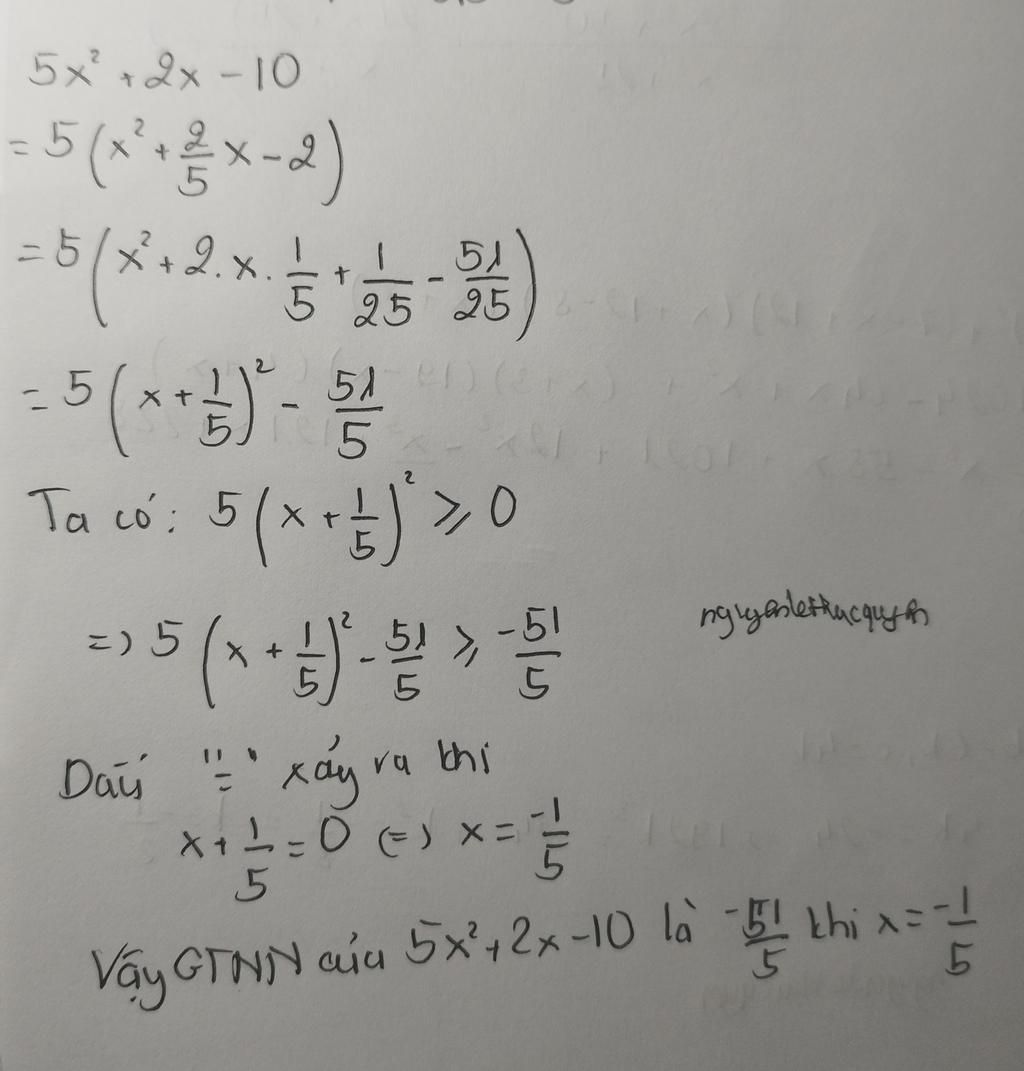 5x² + 2x - 10
= 5(x² + 2/5 x - 2)
= 5(x² + 2.x. 1/5 + 1/25 - 51/25)
= 5(x + 1/5)² - 51/5
Ta có: 5(x + 1/5)² ⩾ 0
=> 5(x + 1/5)² - 51/5 ⩾ -51/5
Dấu "=" xảy ra khi
x + 1/5 = 0 <=> x = -1/5
Vậy GTNN của 5x² + 2x - 10 là -51/5 khi x = -1/5